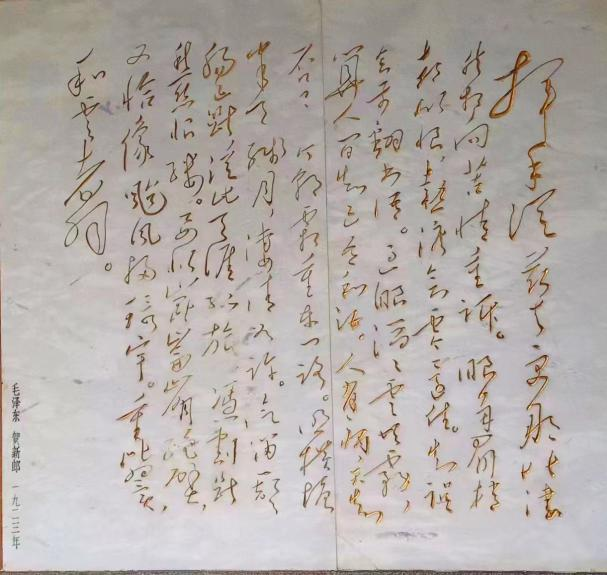 挥手从兹去更那堪凄
然相向苦情重诉。眼角眉梢
都似恨,热泪欲零还住。知误
会前翻书语。过眼滔滔云共雾,
算人间知己吾和汝。人有病,天知
否?今朝霜重东门路,照横塘
半天残月,凄清如许。汽笛一声
肠已断,从此天涯孤旅。凭割断
愁思恨缕。要似昆仑崩绝壁,
又恰像颱风扫寰宇。重比翼,
和云翥。
毛泽东 贺新郎 一九二三年